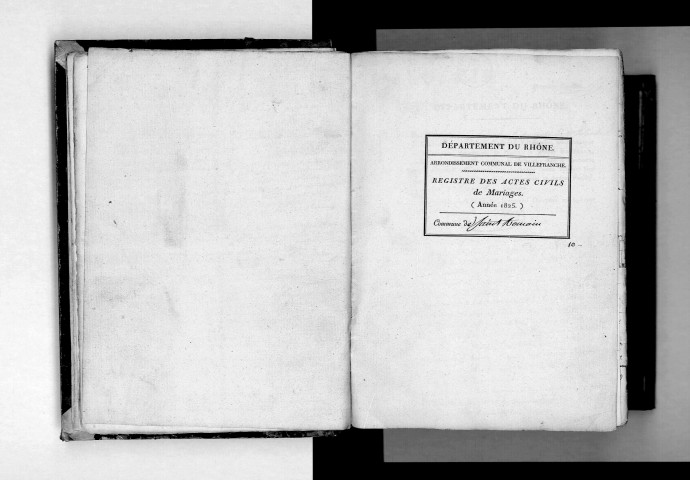 DÉPARTEMENT DU RHÔNE.
ARRONDISSEMENT COMMUNAL DE VILLEFRANCHE.
REGISTRE DES ACTES CIVILS
de Mariages.
( Année 1825. )
Commune de Saint Romain
10